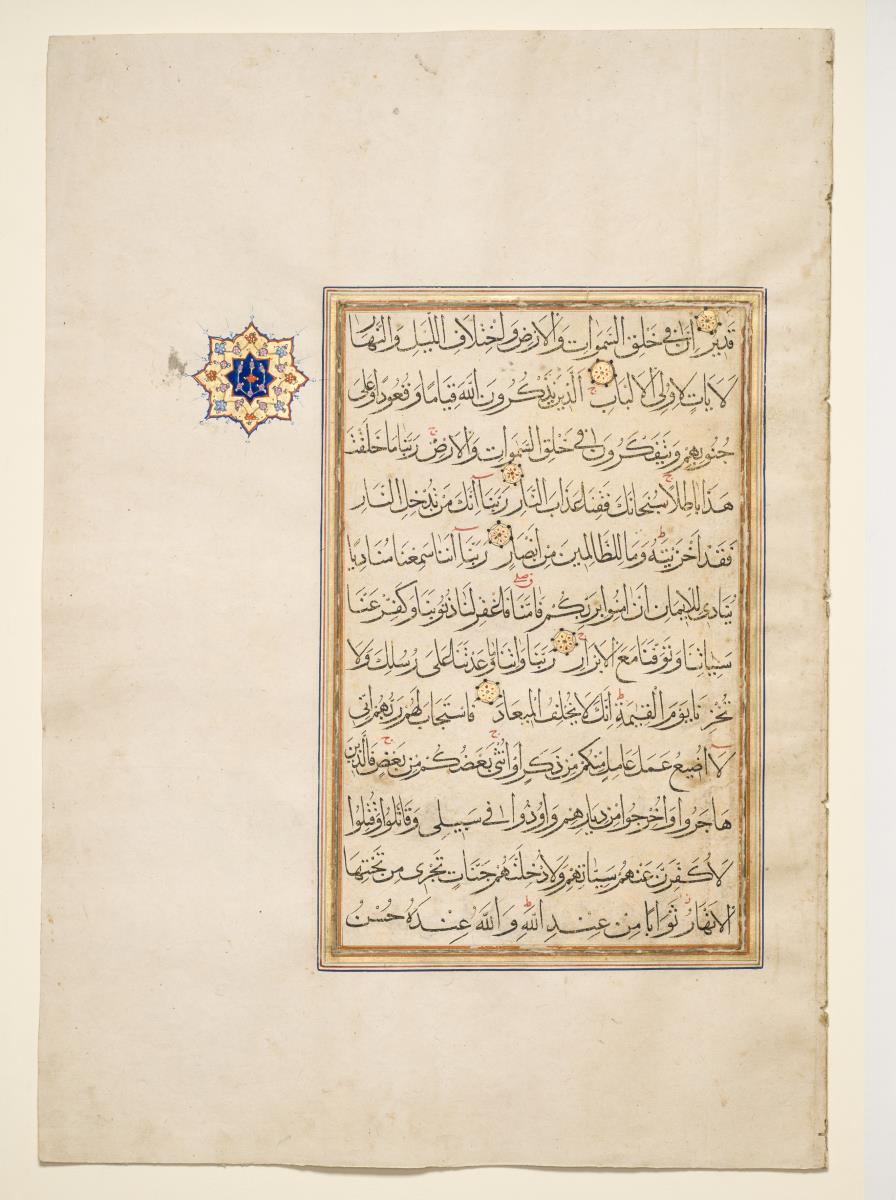 قَدِيرٌ اِنَّ فِي خَلْقِ السَّمَوَاتِ وَالْاَرْضِ وَاخْتِلَافِ اللَّيْلِ وَالنَّهَارِ
لَاَيَاتٍ لِاُولِى الْاَلْبَابِ الَّذِينَ يَذْكُرُونَ اللَّهَ قِيَامًا وَقُعُودًا وَعَلَى
جُنُوبِهِمْ وَيَتَفَكَّرُونَ فِي خَلْقِ السَّمَوَاتِ وَالْاَرْضِ رَبَّنَا مَا خَلَقْتَ
هَذَا بَاطِلًا سُبْحَانَكَ فَقِنَا عَذَابَ النَّارِ رَبَّنَا اِنَّكَ مَنْ تُدْخِلِ النَّارَ
فَقَدْ اَخْزَيْتَهُ وَمَا لِلظَّالِمِينَ مِنْ اَنْصَارٍ رَبَّنَا اِنَّنَا سَمِعْنَا مُنَادِيًا
يُنَادِى لِلْاِيمَانِ اَنْ اٰمِنُوا بِرَبِّكُمْ فَاٰمَنَّا رَبَّنَا فَاغْفِرْ لَنَا ذُنُوبَنَا وَكَفِّرْ عَنَّا
سَيِّاٰتِنَا وَتَوَفَّنَا مَعَ الْاَبْرَارِ رَبَّنَا وَاٰتِنَا مَا وَعَدْتَنَا عَلَى رُسُلِكَ وَلَا
تُخْزِنَا يَوْمَ الْقِيٰمَةِ اِنَّكَ لَا تُخْلِفُ الْمِيعَادَ فَاسْتَجَابَ لَهُمْ رَبُّهُمْ اَنِّى
لَا اُضِيعُ عَمَلَ عَامِلٍ مِنْكُمْ مِنْ ذَكَرٍ اَوْ اُنْثَى بَعْضُكُمْ مِنْ بَعْضٍ فَالَّذِينَ
هَاجَرُوا وَاُخْرِجُوا مِنْ دِيَارِهِمْ وَاُوذُوا فِي سَبِيلِى وَقَاتَلُوا وَقُتِلُوا
لَاُكَفِّرَنَّ عَنْهُمْ سَيِّاٰتِهِمْ وَلَاُدْخِلَنَّهُمْ جَنَّاتٍ تَجْرِى مِنْ تَحْتِهَا
الْاَنْهَارُ ثَوَابًا مِنْ عِنْدِ اللَّهِ وَاللَّهُ عِنْدَهُ حُسْنُ